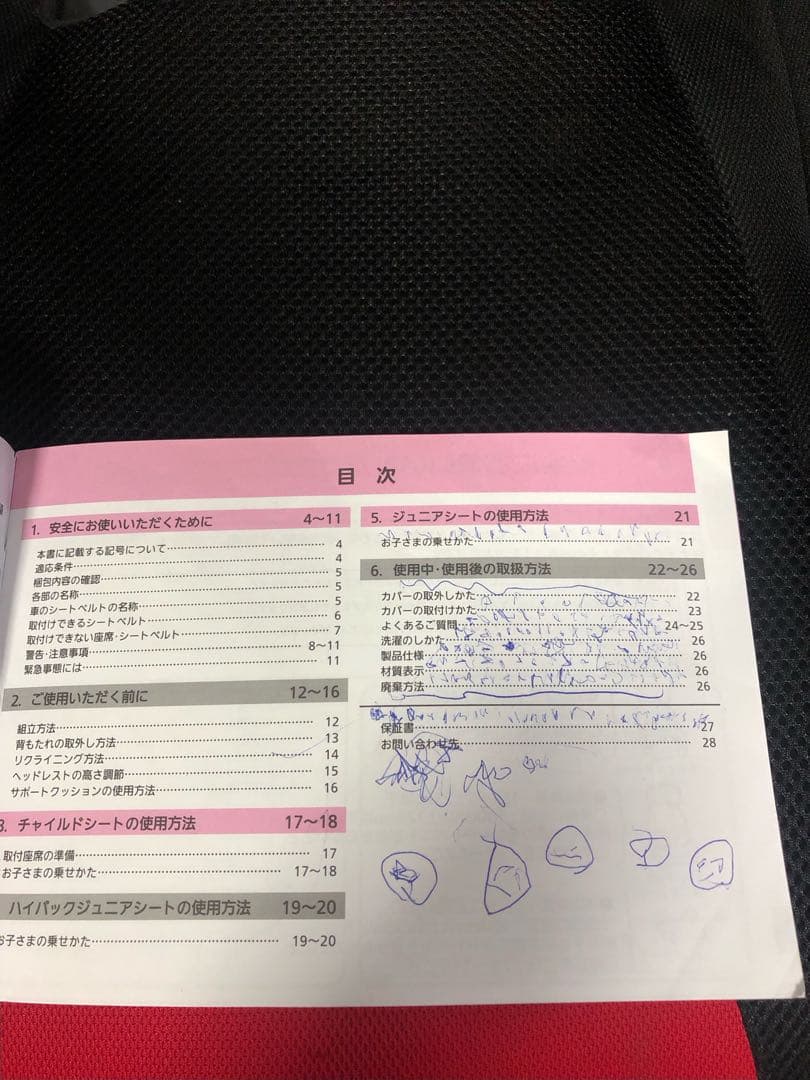 目 次
1. 安全にお使いいただくために 4〜11
本書に記載する記号について 4
適応条件 4
梱包内容の確認 5
各部の名称 5
車のシートベルトの名称 5
取付けできるシートベルト 6
取付けできない座席・シートベルト 7
警告・注意事項 8〜11
緊急事態には 11
2. ご使用いただく前に 12〜16
組立方法 12
背もたれの取外し方法 13
リクライニング方法 14
ヘッドレストの高さ調節 15
サポートクッションの使用方法 16
3. チャイルドシートの使用方法 17〜18
取付座席の準備 17
お子さまの乗せかた 17〜18
ハイバックジュニアシートの使用方法 19〜20
お子さまの乗せかた 19〜20
5. ジュニアシートの使用方法 21
お子さまの乗せかた 21
6. 使用中・使用後の取扱方法 22〜26
カバーの取外しかた 22
カバーの取付けかた 23
よくあるご質問 24〜25
洗濯のしかた 26
製品仕様 26
材質表示 26
廃棄方法 26
保証書 27
お問い合わせ先 28